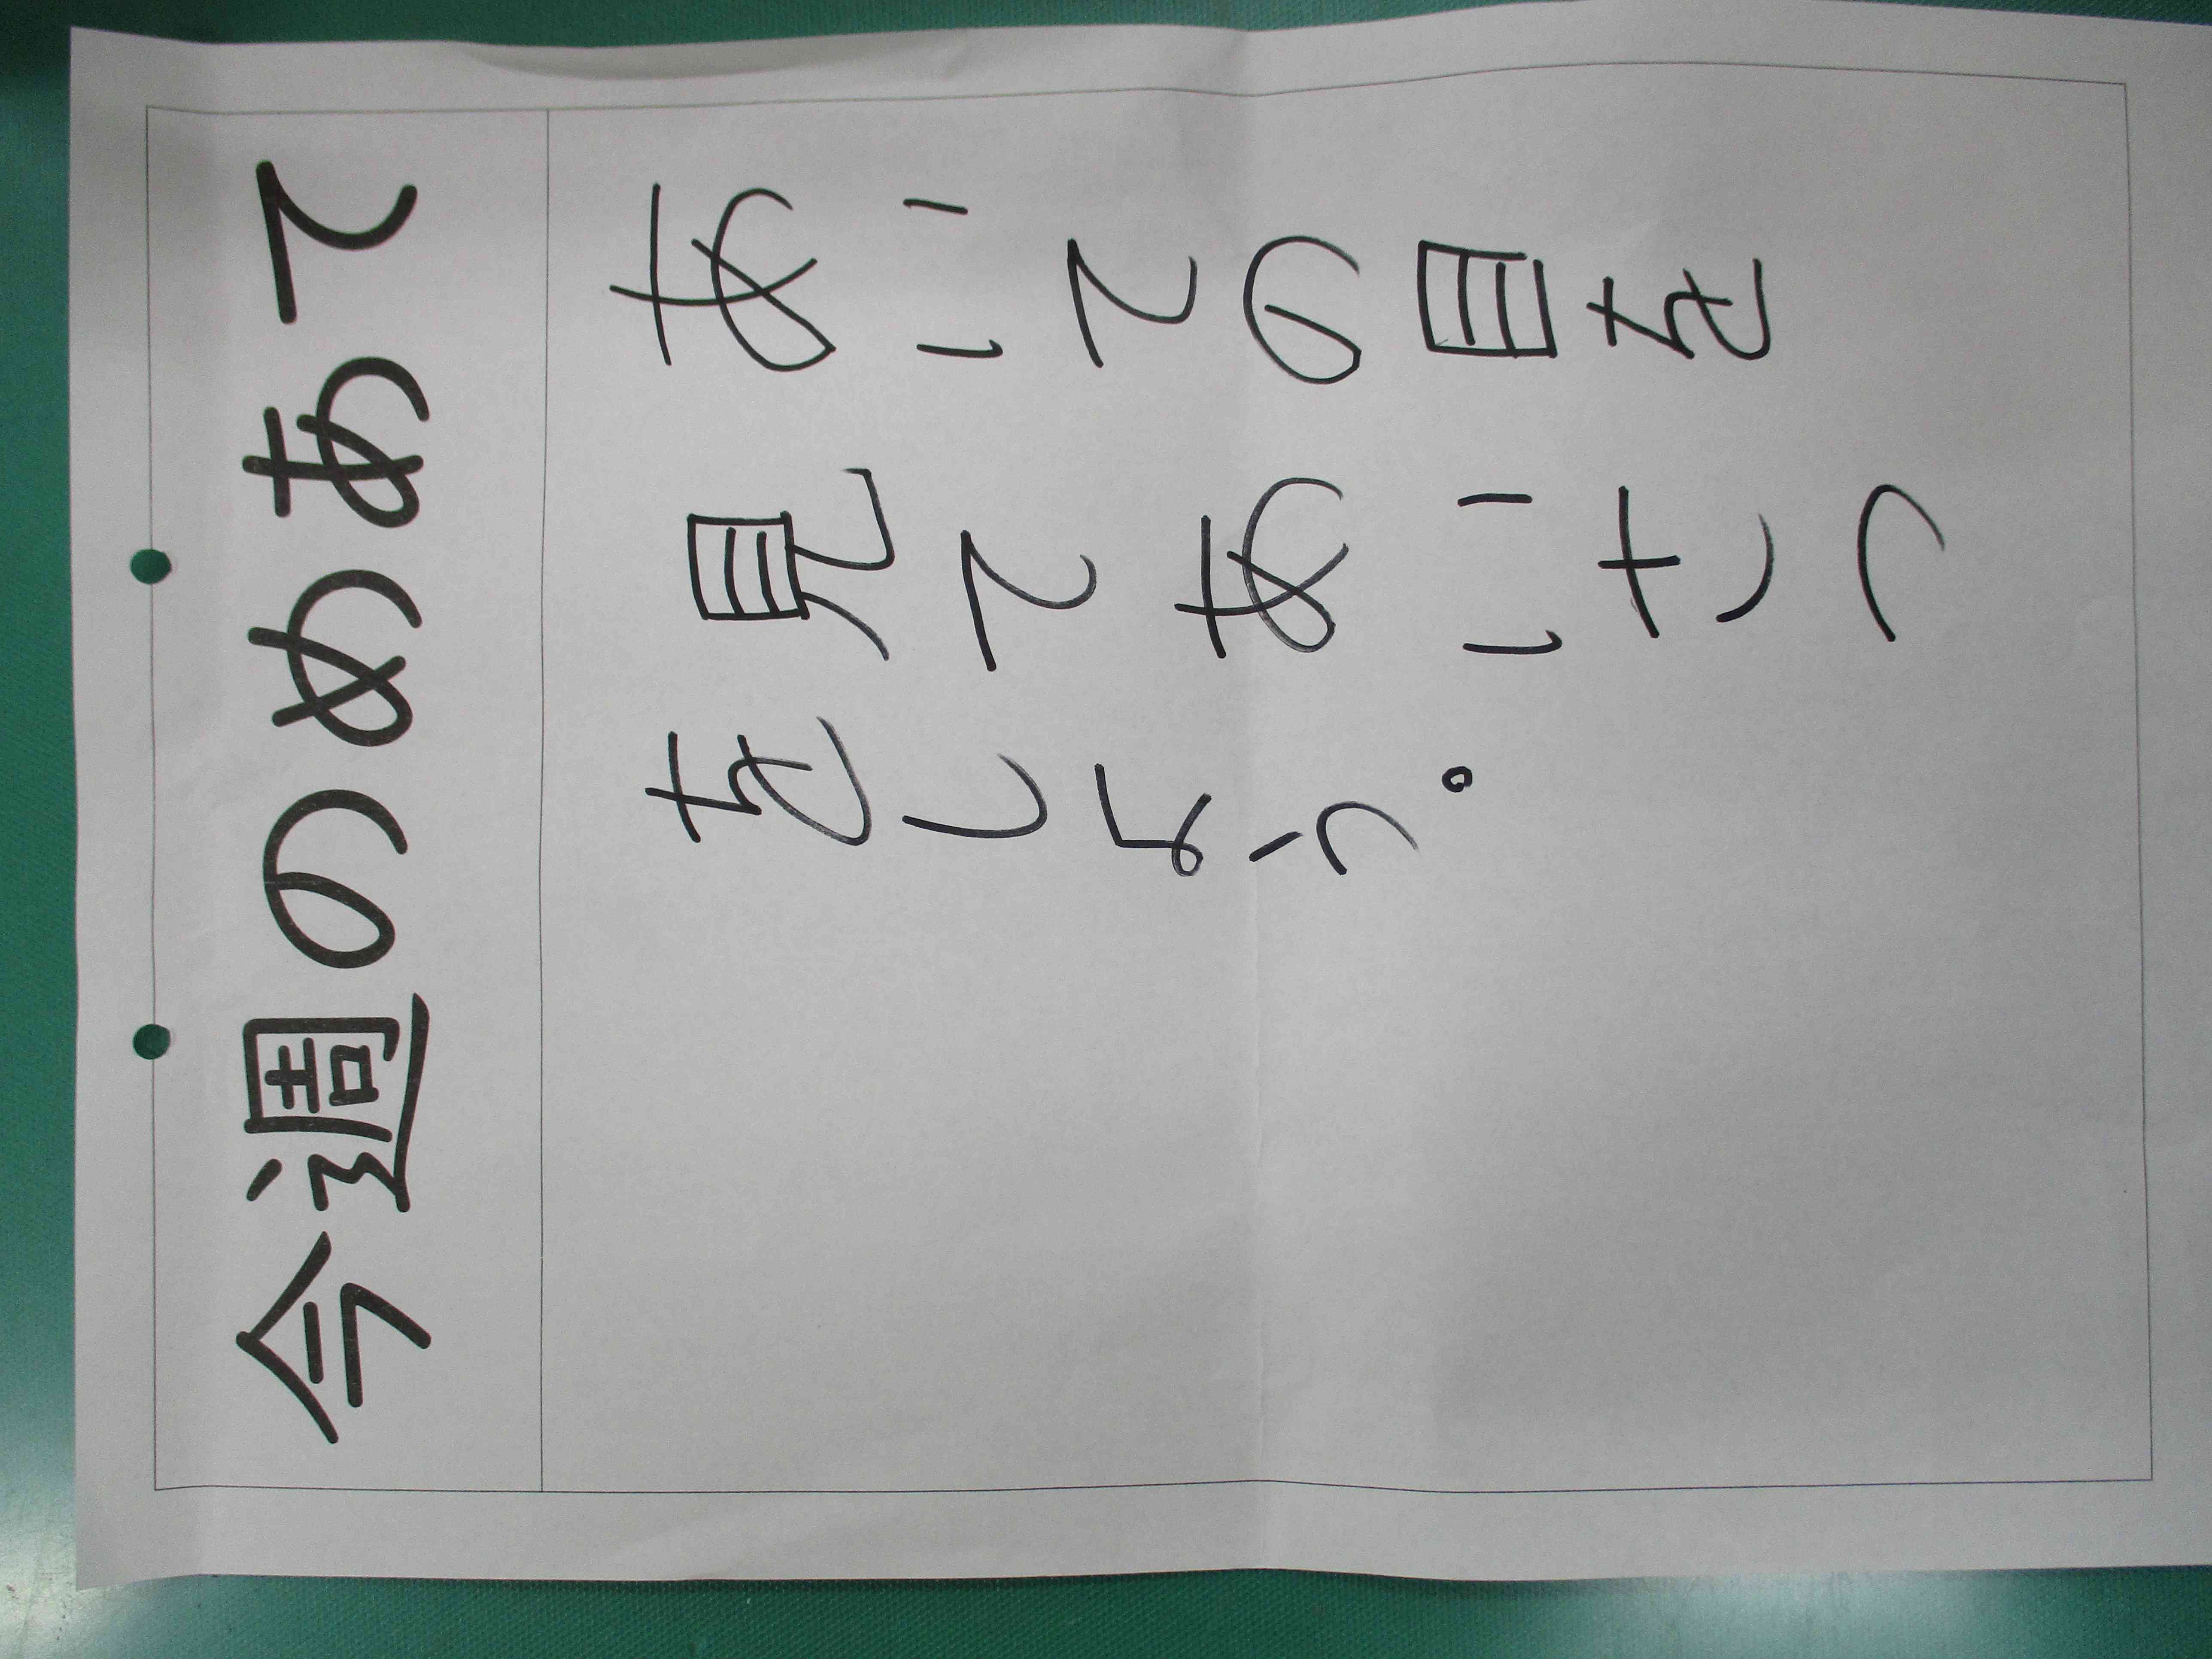 今週のめあて
あいての目を
見てあいさつ
をしよう。